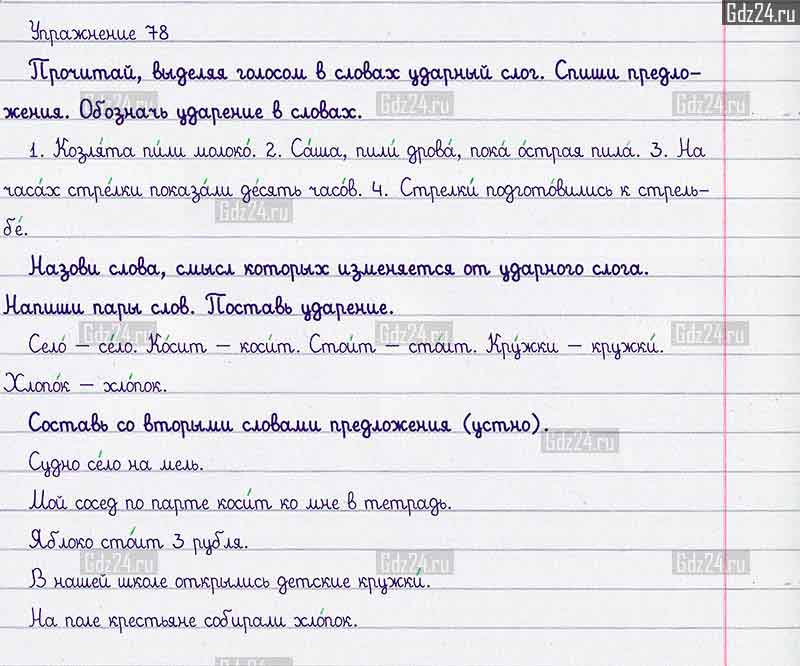 Gdz24.ru
Упражнение 78
Прочитай, выделяя голосом в словах ударный слог. Спиши предло-
жения. Обозначь ударение в словах.
Gdz24.ru Gdz24.ru
1. Козля́та пи́ли молоко́. 2. Са́ша, пили́ дрова́, пока́ о́страя пила́. 3. На
часа́х стре́лки показа́ли де́сять часо́в. 4. Стрелки́ подгото́вились к стрель-
Gdz24.ru
бе́.
Назови слова, смысл которых изменяется от ударного слога.
Напиши пары слов. Поставь ударение.
Gdz24.ru Gdz24.ru Gdz24.ru
Село́ – се́ло. Ко́сит – коси́т. Стои́т – сто́ит. Кру́жки – кружки́.
Хлопо́к – хло́пок.
Составь со вторыми словами предложения (устно).
Gdz24.ru
Судно се́ло на мель.
Мой сосед по парте коси́т ко мне в тетрадь.
Яблоко сто́ит 3 рубля.
Gdz24.ru Gdz24.ru Gdz24.ru
В нашей школе открылись детские кружки́.
На поле крестьяне собирали хло́пок.
Gdz24.ru